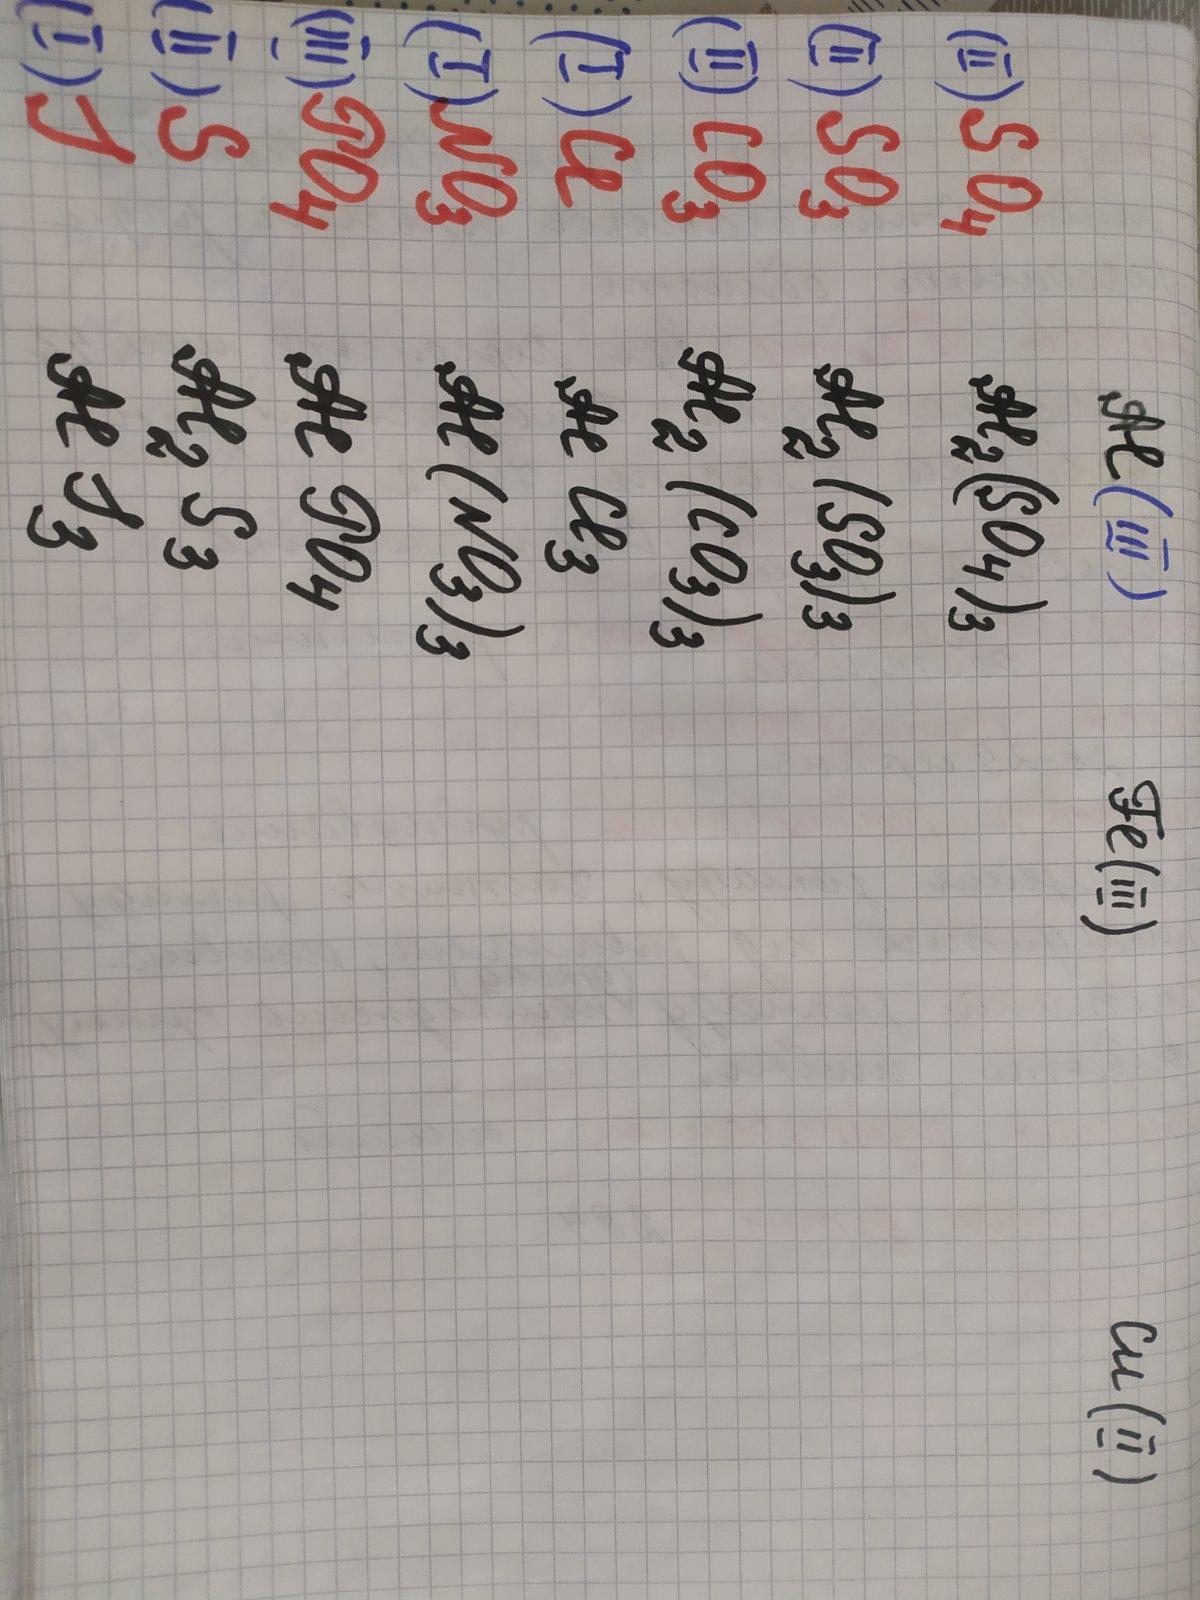 Al (III) Fe (III) Cu (II)
(II) SO4 Al2(SO4)3
(II) SO3 Al2(SO3)3
(II) CO3 Al2(CO3)3
(I) Cl AlCl3
(I) NO3 Al(NO3)3
(III) PO4 AlPO4
(II) S Al2S3
(I) J AlJ3